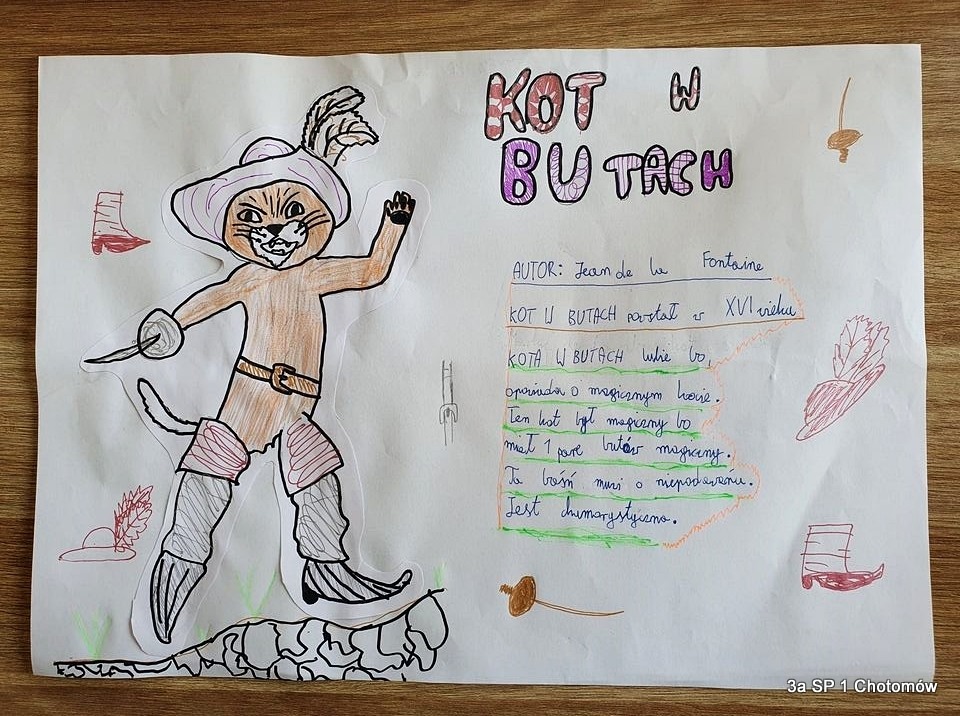 KOT W
BUTACH
AUTOR: Jean de la Fontaine
KOT W BUTACH powstał w XVI wieku
KOTA W BUTACH lubię bo
opowiada o magicznym kocie.
Ten kot był magiczny bo
miał 1 parę butów magiczny.
Ta baśń mówi o niepoddawaniu.
Jest humorystyczna.
3a SP 1 Chotomów